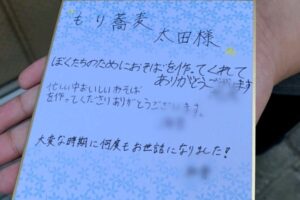 もり蕎麦
太田様
ぼくたちのためにおそばを作ってくれて
ありがとう ます
忙しい中おいしいおそば
を作ってくださりありがとうございます。
大変な時期に何度もお世話になりました!